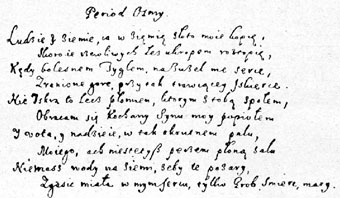 Period Osmy
Ludzie z Ziemie, ia w Ziemię złoto moie kopię,
Skoro ie rzewliwych łez ukropem roztopię,
Kędy bolesnem Tyglem, na Buzel me serce,
Zranione gore, przy tak trawiącey Iskierce.
Nie Iskra to lecz płomień, ktorym z tobą społem,
Obracam się kochany Synu moy popiołem
Y wola, y nadzieie, w tak okrutnem palu,
Moiego, ach niestetysz perzem płoną żalu
Niemasz wody na Ziemi, żeby te pożary,
Zgasić miała w mym sercu, tylko Grob, Smierć, mary.